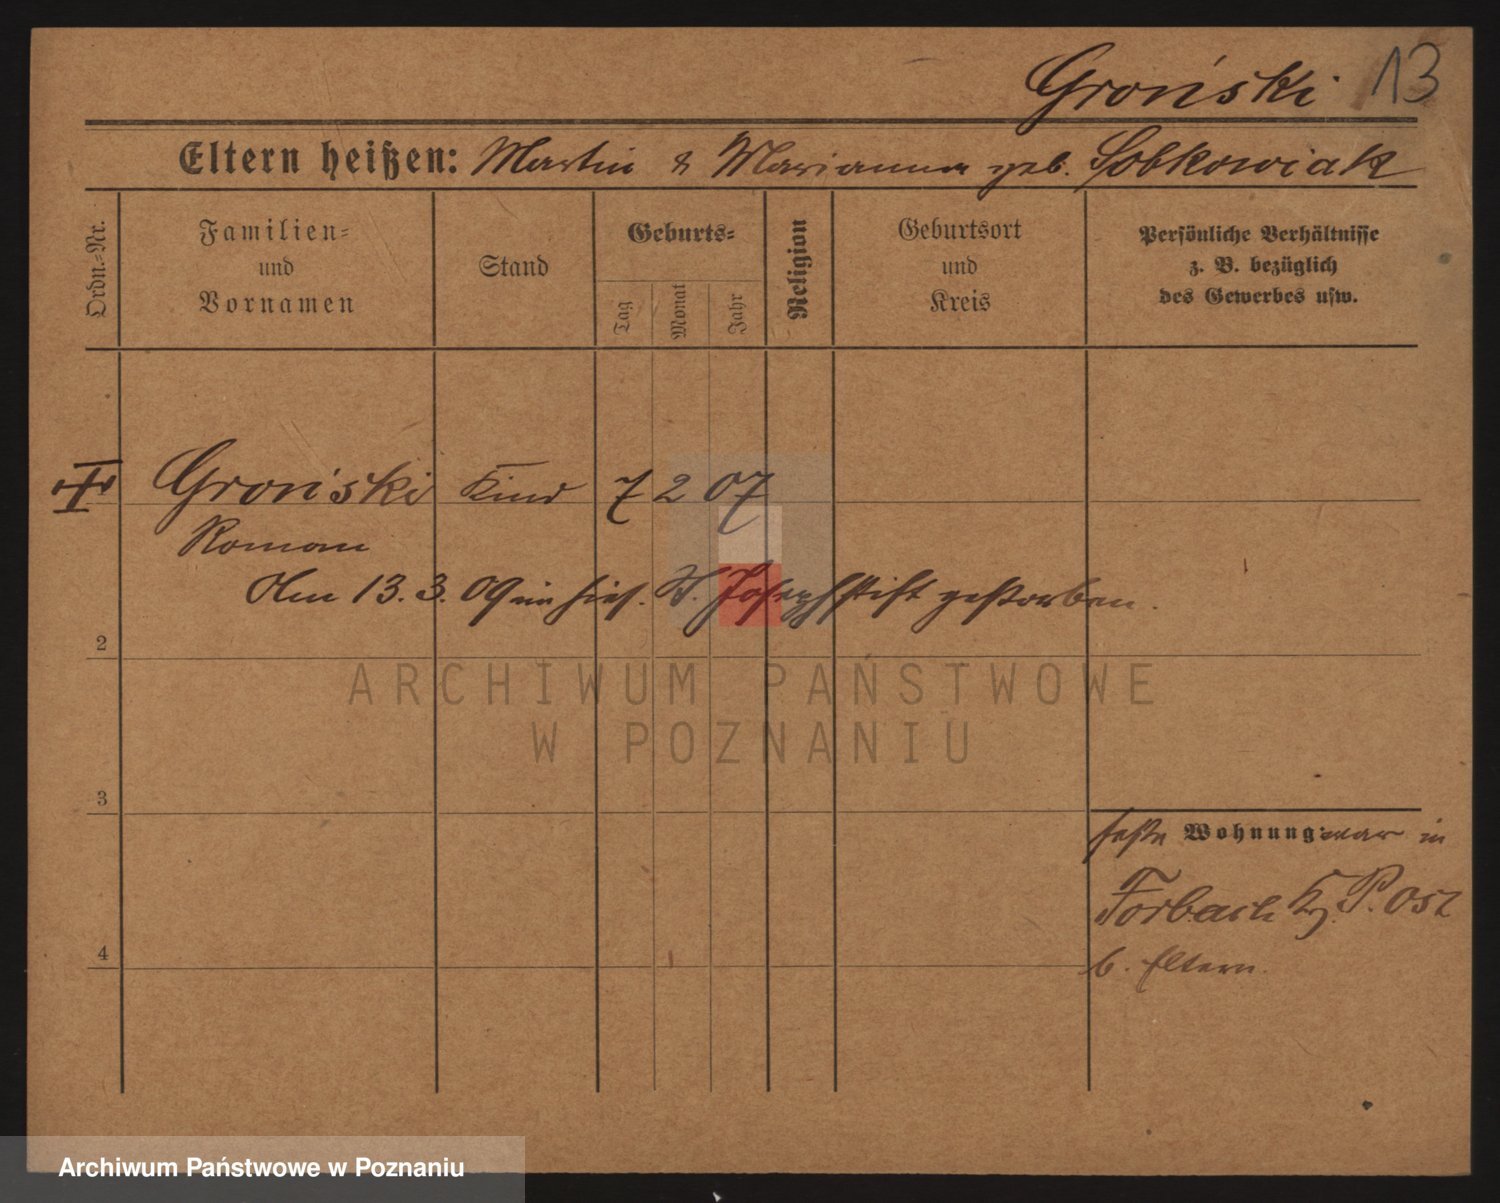 Groński 13
Eltern heißen: Martin & Marianna geb. Sobkowiak
Ordn.-Nr.
Familien-
und
Vornamen
Stand
Geburts-
Tag
Monat
Jahr
Religion
Geburtsort
und
Kreis
Persönliche Verhältnisse
z. B. bezüglich
des Gewerbes usw.
Groński Kind 7 2 07
Roman
Am 13. 3. 09 im hies. St. Josephstift gestorben.
2
ARCHIWUM PAŃSTWOWE
W POZNANIU
3
feste Wohnung: war in
Forbach Krs. P. Ost
4
b. Eltern.
Archiwum Państwowe w Poznaniu